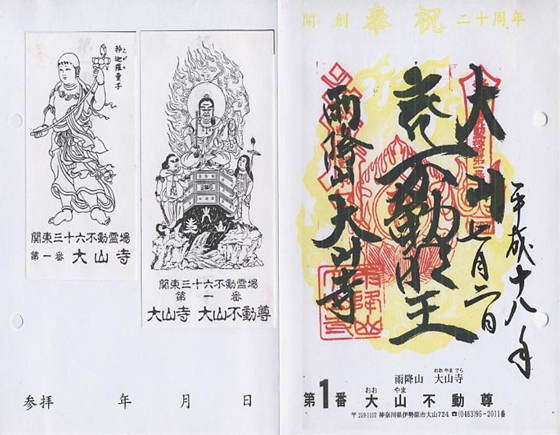 矜迦羅童子
関東三十六不動霊場
第一番 大山寺
関東三十六不動霊場
第一番
大山寺 大山不動尊
参拝 年 月 日
開創 奉祝 二十周年
平成十八年
七月二日
大山
大山寺
雨降山
雨降山 大山寺
おおやまでら
第1番 大山不動尊
おおやま
〒259-1107 神奈川県伊勢原市大山724 ☎(0463)95-2011番